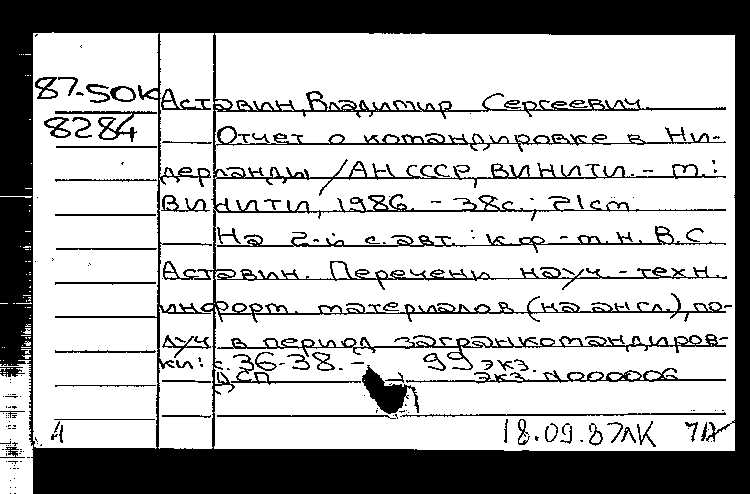 87-50К Аставин, Владимир Сергеевич.
8284 Отчет о командировке в Ни-
дерланды / АН СССР, ВИНИТИ. - М.:
ВИНИТИ, 1986. - 38с.; 21см.
На 2-й с. авт.: к.ф.-м.н. В.С.
Аставин. Перечень науч.-техн.
информ. материалов (на англ.), по-
луч. в период загранкомандиров-
ки: с. 36-38. - 99 экз.
ДСП экз. N000006
18.09.87 ЛК